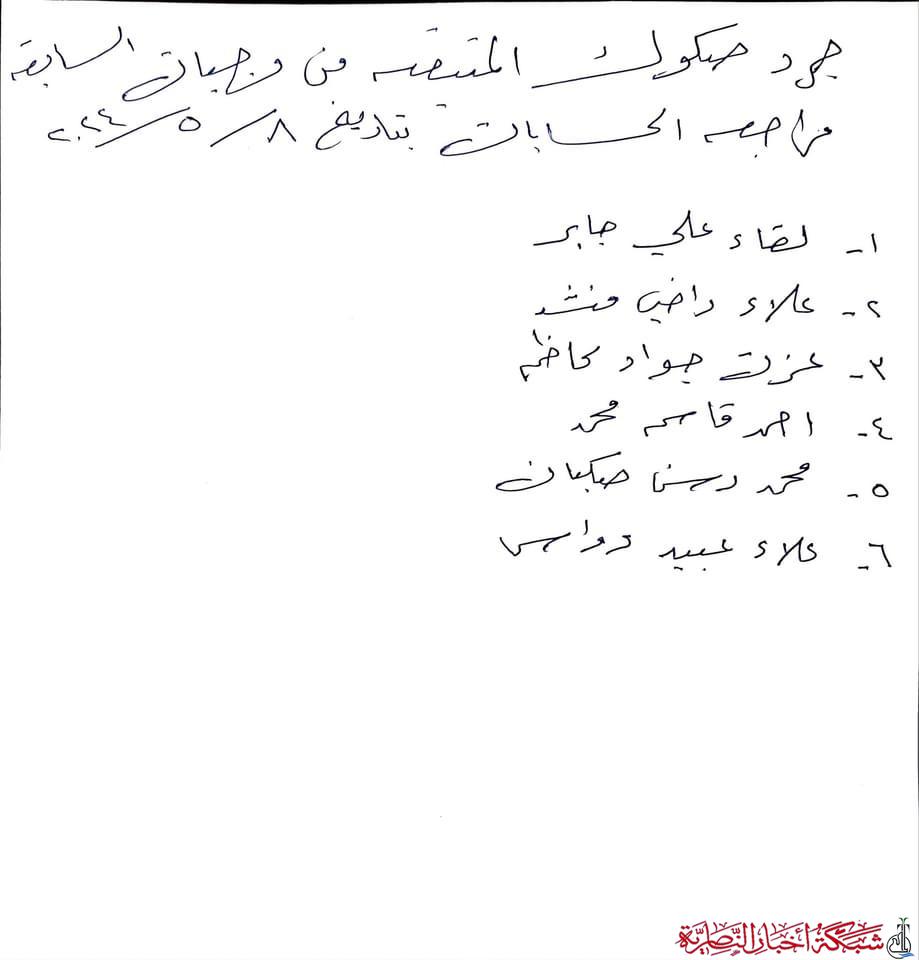 جرد صكوك المتبقيه من وجبات السابقه
مراجعه الحسابات بتاريخ ٨/٥/٢٠٢٤
١- لقاء علي جابر
٢- علاء راضي منشد
٣- عزت جواد كاظم
٤- احمد قاسم محمد
٥- محمد حسن صكبان
٦- علاء عبيد دواس
شبكة أخبار الناصرية